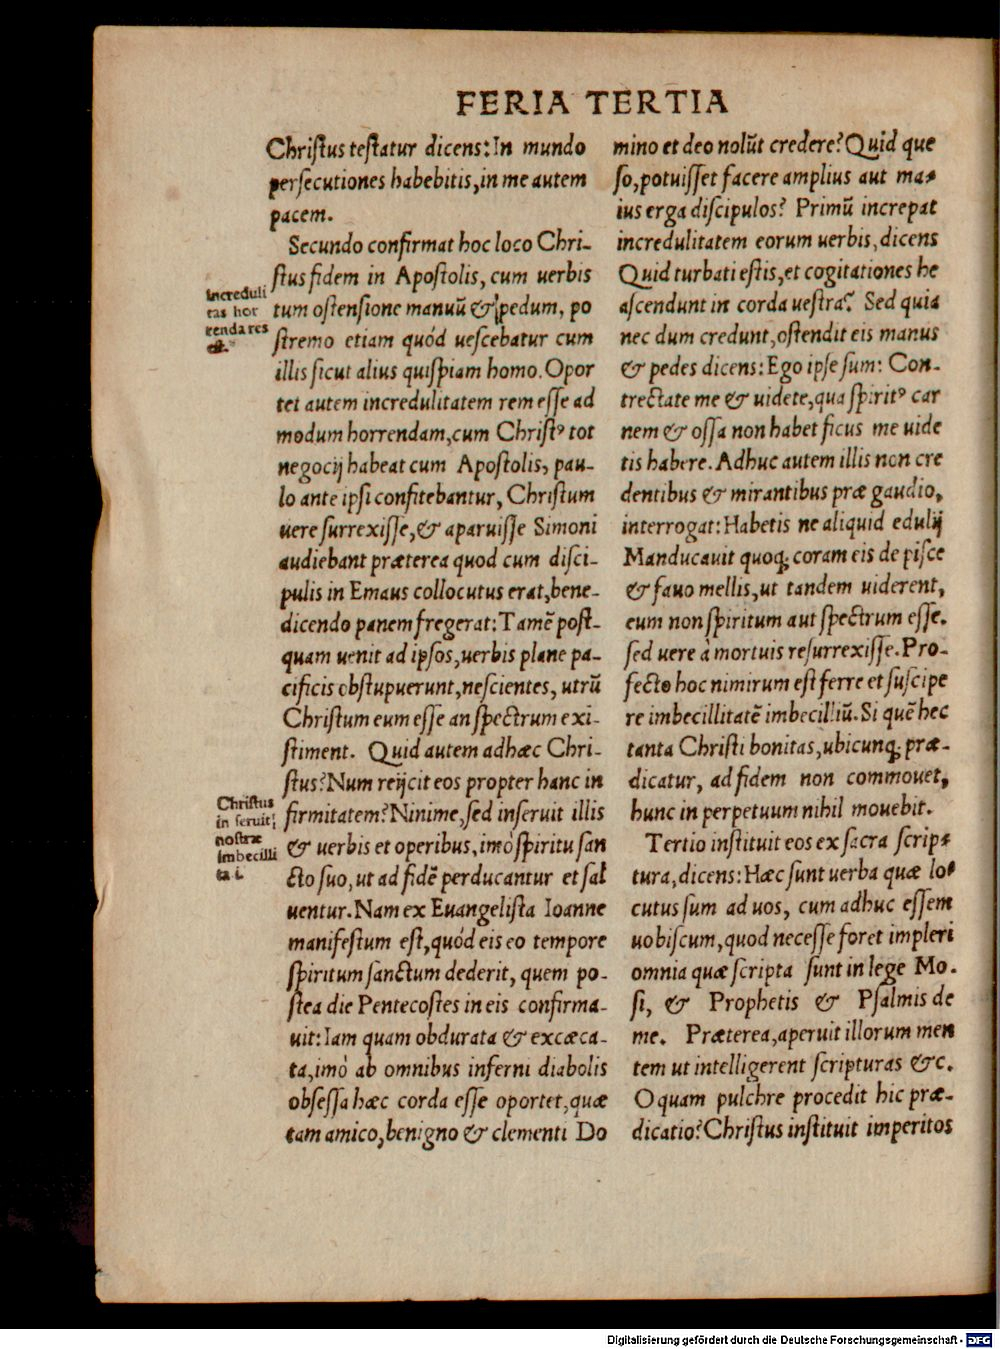 FERIA TERTIA
Chriſtus teſtatur dicens: In mundo
perſecutiones habebitis, in me autem
pacem.
Secundo confirmat hoc loco Chri-
ſtus fidem in Apoſtolis, cum uerbis
tum oſtenſione manuū & pedum, po
ſtremo etiam quód ueſcebatur cum
illis ſicut alius quiſpiam homo. Opor
tet autem incredulitatem rem eſſe ad
modum horrendam, cum Chriſtꝰ tot
negocij habeat cum Apoſtolis, pau-
lo ante ipſi confitebantur, Chriſtum
uere ſurrexiſſe, & aparuiſſe Simoni
audiebant præterea quod cum diſci-
pulis in Emaus collocutus erat, bene-
dicendo panem fregerat: Tamē poſt-
quam uenit ad ipſos, uerbis plane pa-
cificis obſtupuerunt, neſcientes, utrū
Chriſtum eum eſſe an ſpectrum exi-
ſtiment. Quid autem adhæc Chri-
ſtus? Num reijcit eos propter hanc in
firmitatem? Ninime, ſed inſeruit illis
& uerbis et operibus, imò ſpiritu ſan
cto ſuo, ut ad fidē perducantur et ſal
uentur. Nam ex Euangeliſta Ioanne
manifeſtum eſt, quód eis eo tempore
ſpiritum ſanctum dederit, quem po-
ſtea die Pentecoſtes in eis confirma-
uit: Iam quam obdurata & excæca-
ta, imò ab omnibus inferni diabolis
obſeſſa hæc corda eſſe oportet, quæ
tam amico, benigno & clementi Do
increduli
tas hor
renda res
eſt.
Chriſtus
in ſeruit
noſtræ
imbecilli
ta i.
mino et deo nolūt credere? Quid que
ſo, potuiſſet facere amplius aut ma-
ius erga diſcipulos? Primū increpat
incredulitatem eorum uerbis, dicens
Quid turbati eſtis, et cogitationes he
aſcendunt in corda ueſtra? Sed quia
nec dum credunt, oſtendit eis manus
& pedes dicens: Ego ipſe ſum: Con-
trectate me & uidete, qua ſpiritꝰ car
nem & oſſa non habet ſicus me uide
tis habere. Adhuc autem illis non cre
dentibus & mirantibus præ gaudio,
interrogat: Habetis ne aliquid edulij
Manducauit quoq; coram eis de piſce
& fauo mellis, ut tandem uiderent,
eum non ſpiritum aut ſpectrum eſſe.
ſed uere à mortuis reſurrexiſſe. Pro-
fecto hoc nimirum eſt ferre et ſuſcipe
re imbecillitatē imbecilliū. Si quē hec
tanta Chriſti bonitas, ubicunq; præ-
dicatur, ad fidem non commouet,
hunc in perpetuum nihil mouebit.
Tertio inſtituit eos ex ſacra ſcrip-
tura, dicens: Hæc ſunt uerba quæ lo-
cutus ſum ad uos, cum adhuc eſſem
uobiſcum, quod neceſſe foret impleri
omnia quæ ſcripta ſunt in lege Mo-
ſi, & Prophetis & Pſalmis de
me. Præterea, aperuit illorum men
tem ut intelligerent ſcripturas &c.
O quam pulchre procedit hic præ-
dicatio? Chriſtus inſtituit imperitos
Digitalisierung gefördert durch die Deutsche Forschungsgemeinschaft - DFG